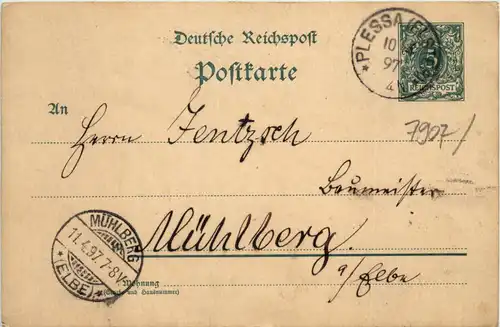 Deutsche Reichspost
Postkarte
PLESSA (
10
97
4
5
REICHSPOST
An
Herrn Jentzsch
7907/
Baumeister
Mühlberg.
a/Elbe
MÜHLBERG
11.4.97.7-8V.
* (ELBE) *
Wohnung
(Straße und Hausnummer)